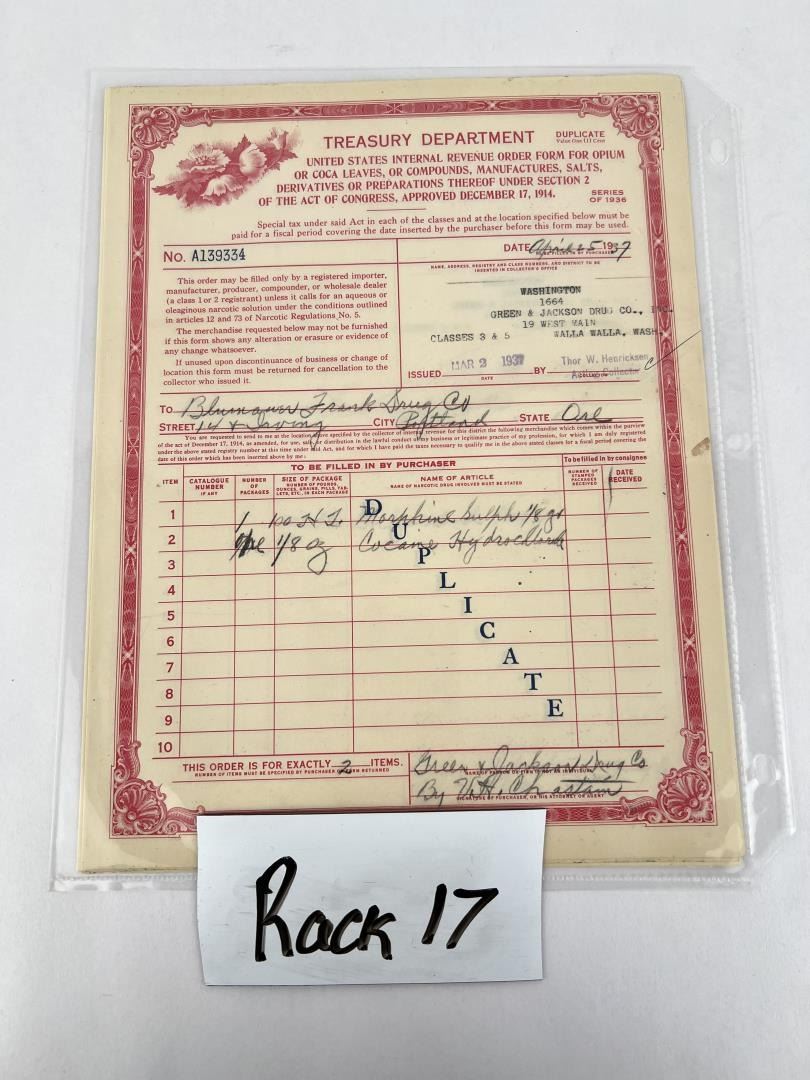 TREASURY DEPARTMENT
DUPLICATE
Value One III Cent
UNITED STATES INTERNAL REVENUE ORDER FORM FOR OPIUM
OR COCA LEAVES, OR COMPOUNDS, MANUFACTURES, SALTS,
DERIVATIVES OR PREPARATIONS THEREOF UNDER SECTION 2
OF THE ACT OF CONGRESS, APPROVED DECEMBER 17, 1914.
SERIES
OF 1936
Special tax under said Act in each of the classes and at the location specified below must be
paid for a fiscal period covering the date inserted by the purchaser before this form may be used.
No. A139334
This order may be filled only by a registered importer,
manufacturer, producer, compounder, or wholesale dealer
(a class 1 or 2 registrant) unless it calls for an aqueous or
oleaginous narcotic solution under the conditions outlined
in articles 12 and 73 of Narcotic Regulations No. 5.
The merchandise requested below may not be furnished
if this form shows any alteration or erasure or evidence of
any change whatsoever.
If unused upon discontinuance of business or change of
location this form must be returned for cancellation to the
collector who issued it.
DATE April 25 1937
NAME, ADDRESS, REGISTRY AND CLASS NUMBERS, AND DISTRICT TO BE
INSERTED IN COLLECTOR'S OFFICE
WASHINGTON
1664
GREEN & JACKSON DRUG CO., INC.
19 WEST MAIN
CLASSES 3 & 5 WALLA WALLA, WASH.
ISSUED MAR 2 1937 BY Thor W. Henricksen
DATE Acting Collector
TO Blumauer Frank Drug Co
STREET 14 & Irving CITY Portland STATE Ore
You are requested to send to me at the location above specified by the collector of internal revenue for this district the following merchandise which comes within the purview
of the act of December 17, 1914, as amended, for use, sale, or distribution in the lawful conduct of my business or legitimate practice of my profession, for which I am duly registered
under the above stated registry number at this time under said Act, and I have paid the taxes necessary to qualify me in the above stated classes for a fiscal period covering the
date of this order which has been inserted above by me:
TO BE FILLED IN BY PURCHASER
To be filled in by consignee
ITEM
CATALOGUE
NUMBER
IF ANY
NUMBER
OF
PACKAGES
SIZE OF PACKAGE
NUMBER OF POUNDS,
OUNCES, GRAINS, PILLS, TAB-
LETS, ETC., IN EACH PACKAGE
NAME OF ARTICLE
NAME OF NARCOTIC DRUG INVOLVED MUST BE STATED
NUMBER OF
STAMPED
PACKAGES
RECEIVED
DATE
RECEIVED
1 1 100 H T. Morphine Sulph 1/8 gr
2 One 1/8 oz Cocaine Hydrochlorid
3
4
5
6
7
8
9
10
DUPLICATE
THIS ORDER IS FOR EXACTLY 2 ITEMS.
Green & Jackson Drug Co
By V.H. Chastain
SIGNATURE OF PURCHASER, OR HIS ATTORNEY OR AGENT
Rack 17